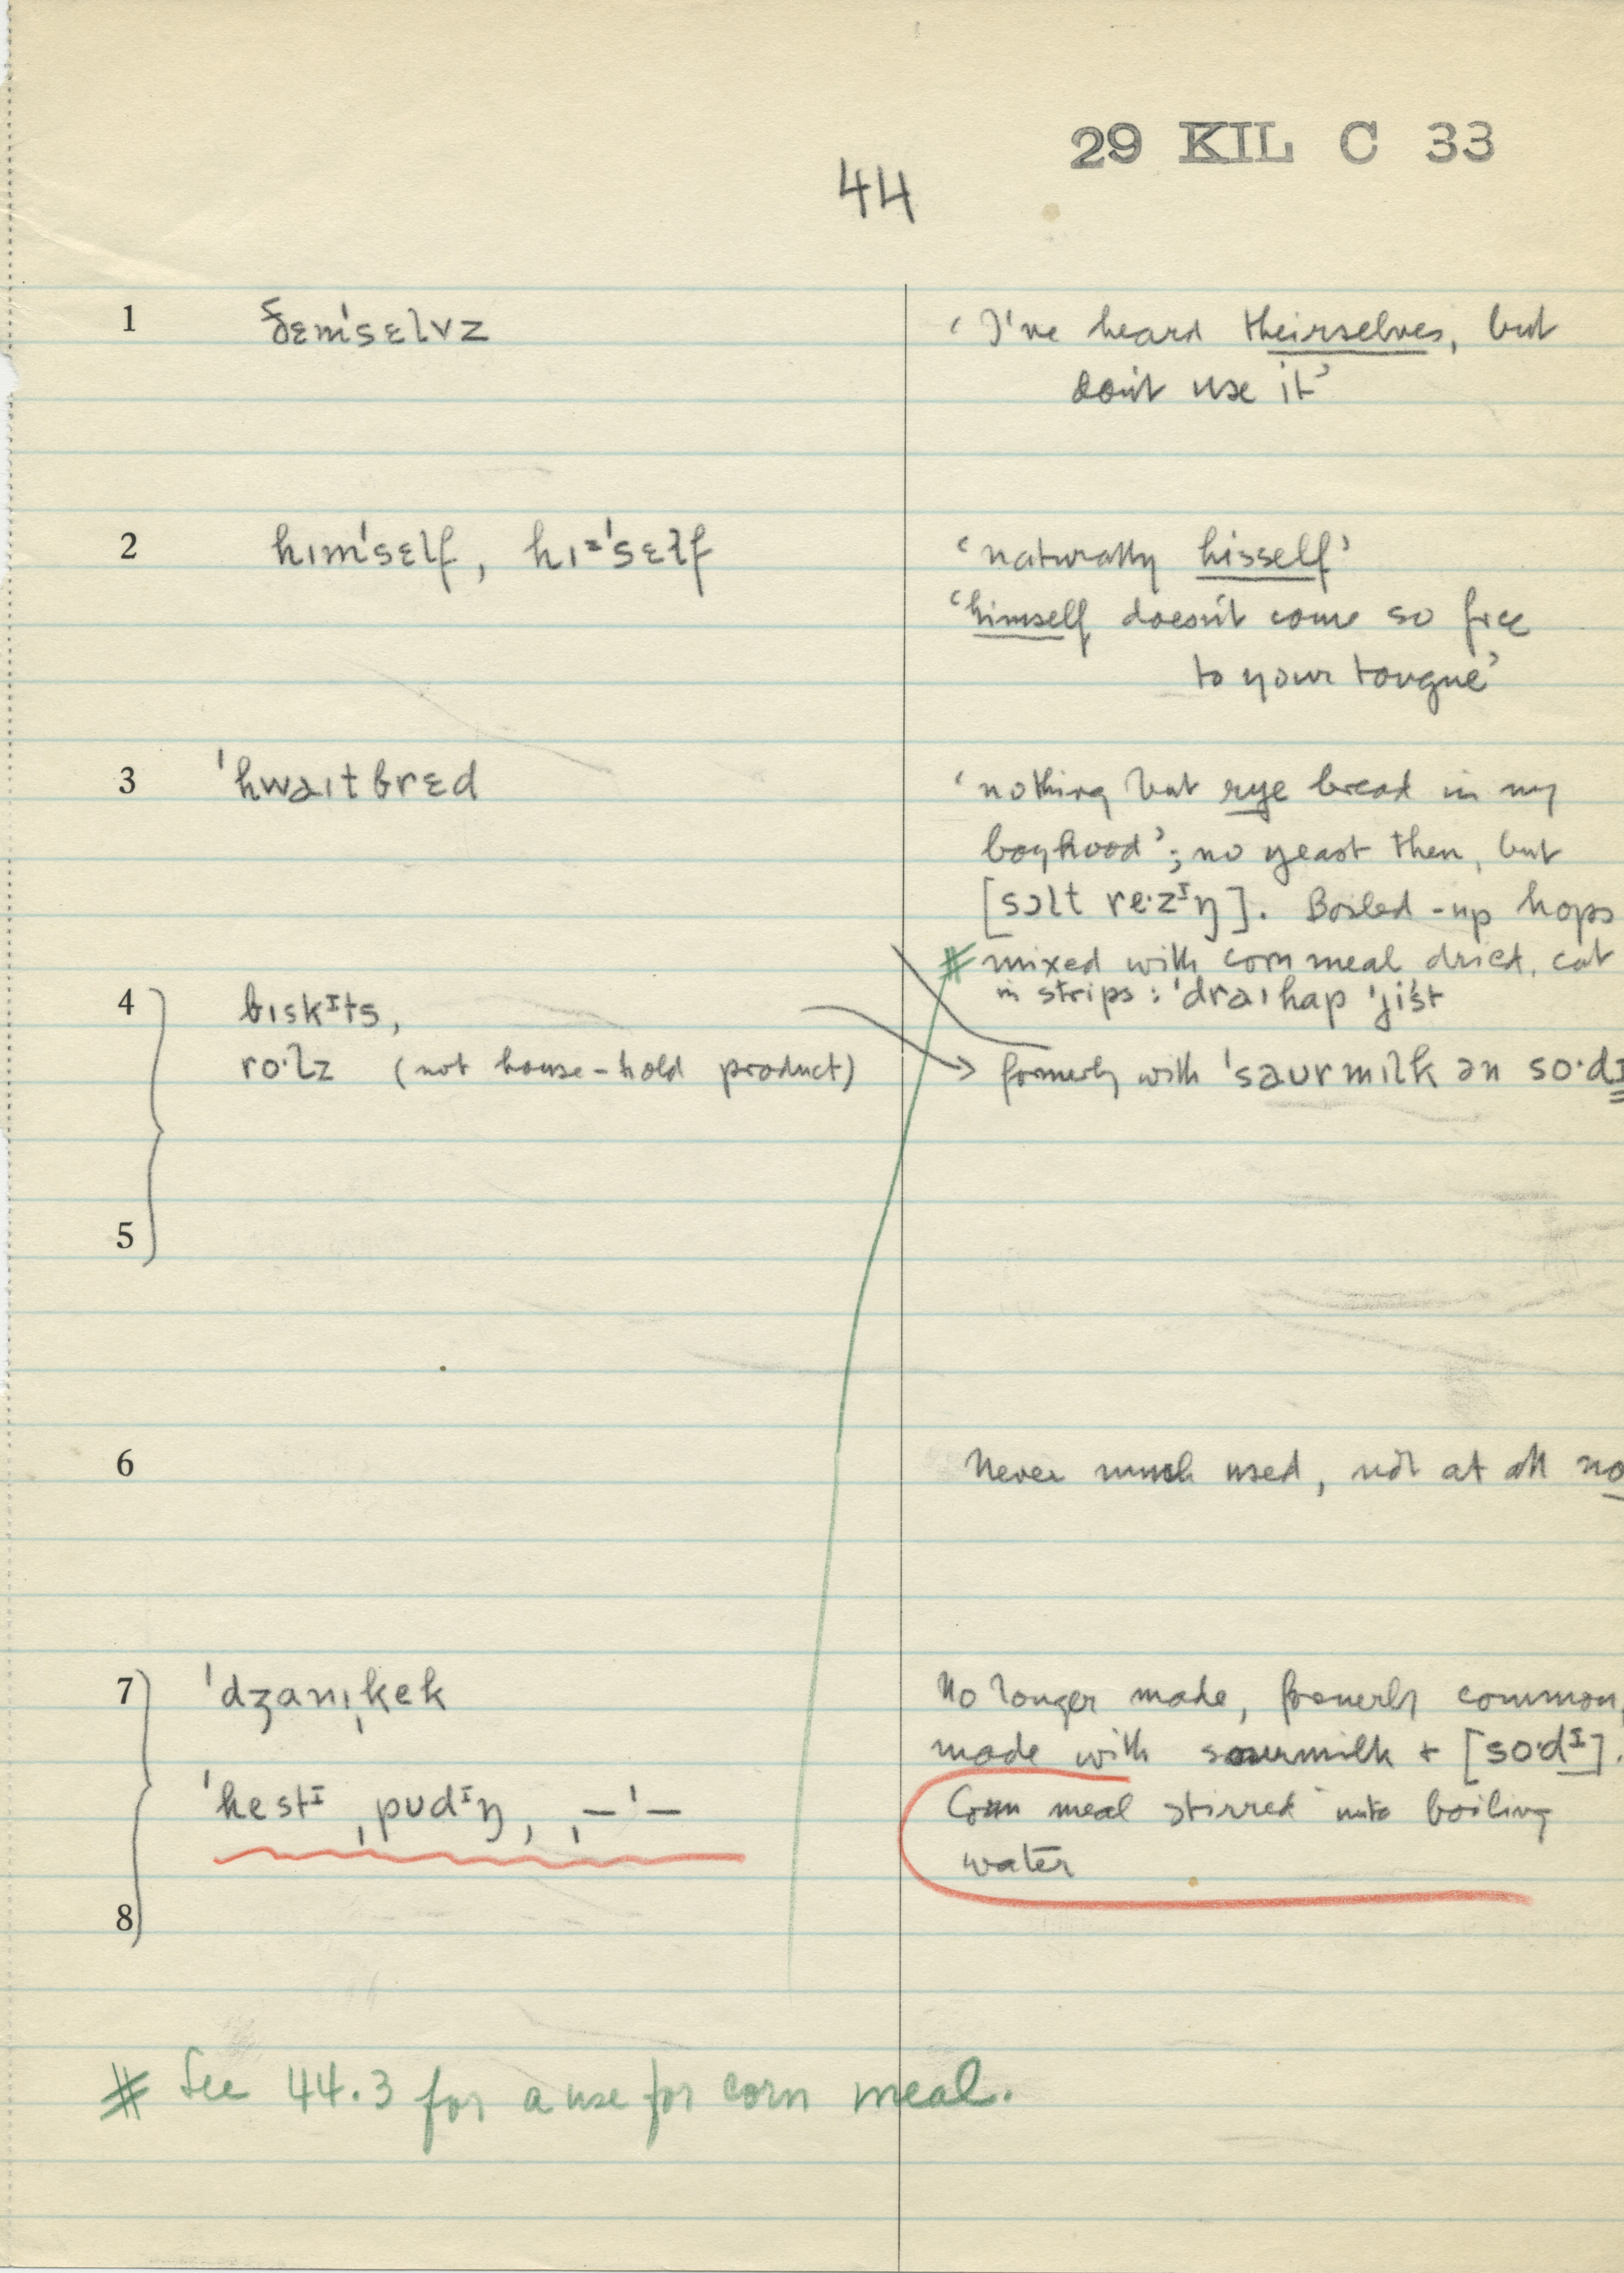 29 KIL C 33
44
1 ðɛm'sɛlvz
‘I've heard theirselves, but
don't use it’
2 hɪm'sɛlf, hɪz'sɛlf
‘naturally hisself’
‘himself doesn't come so free
to your tongue’
3 'hwaɪtbrɛd
‘nothing but rye bread in my
boyhood’; no yeast then, but
[sɔlt re·zᴵŋ]. Boiled-up hops
# mixed with corn meal dried, cut
in strips: 'draɪhap 'jist
4 bɪskᴵts,
ro·lz (not house-hold product)
formerly with 'saurmɪlk ən so·dɪ
5
6 Never much used, not at all no
7 'dʒanɪˌkek
No longer made, formerly common,
made with sourmilk + [so·dᴵ].
'hestᴵ ˌpudᴵŋ, ˌ—'—
Corn meal stirred into boiling
water
8
# See 44.3 for a use for corn meal.